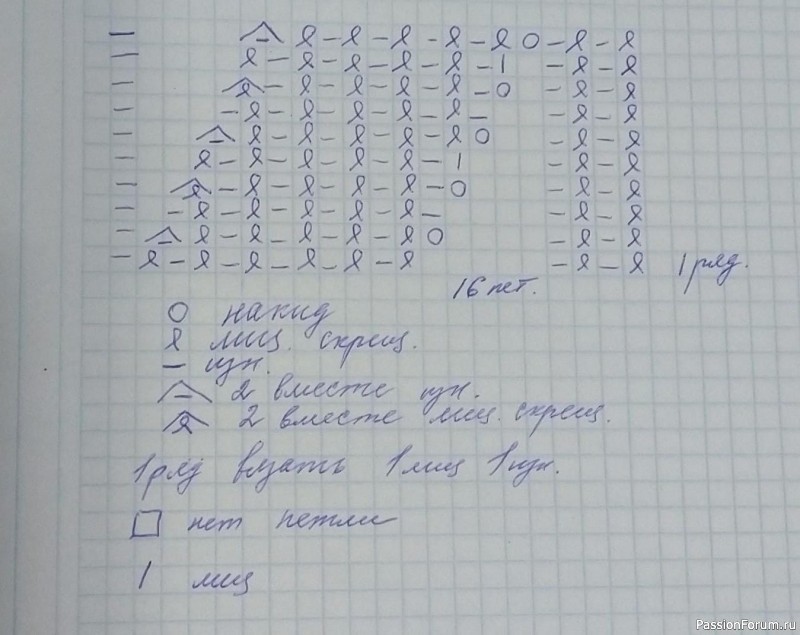 1 ряд.
16 пет.
O накид
лиц. скрещ.
— изн.
2 вместе изн.
2 вместе лиц. скрещ.
1 ряд вязать 1 лиц 1 изн.
нет петли
1 лиц
PassionForum.ru